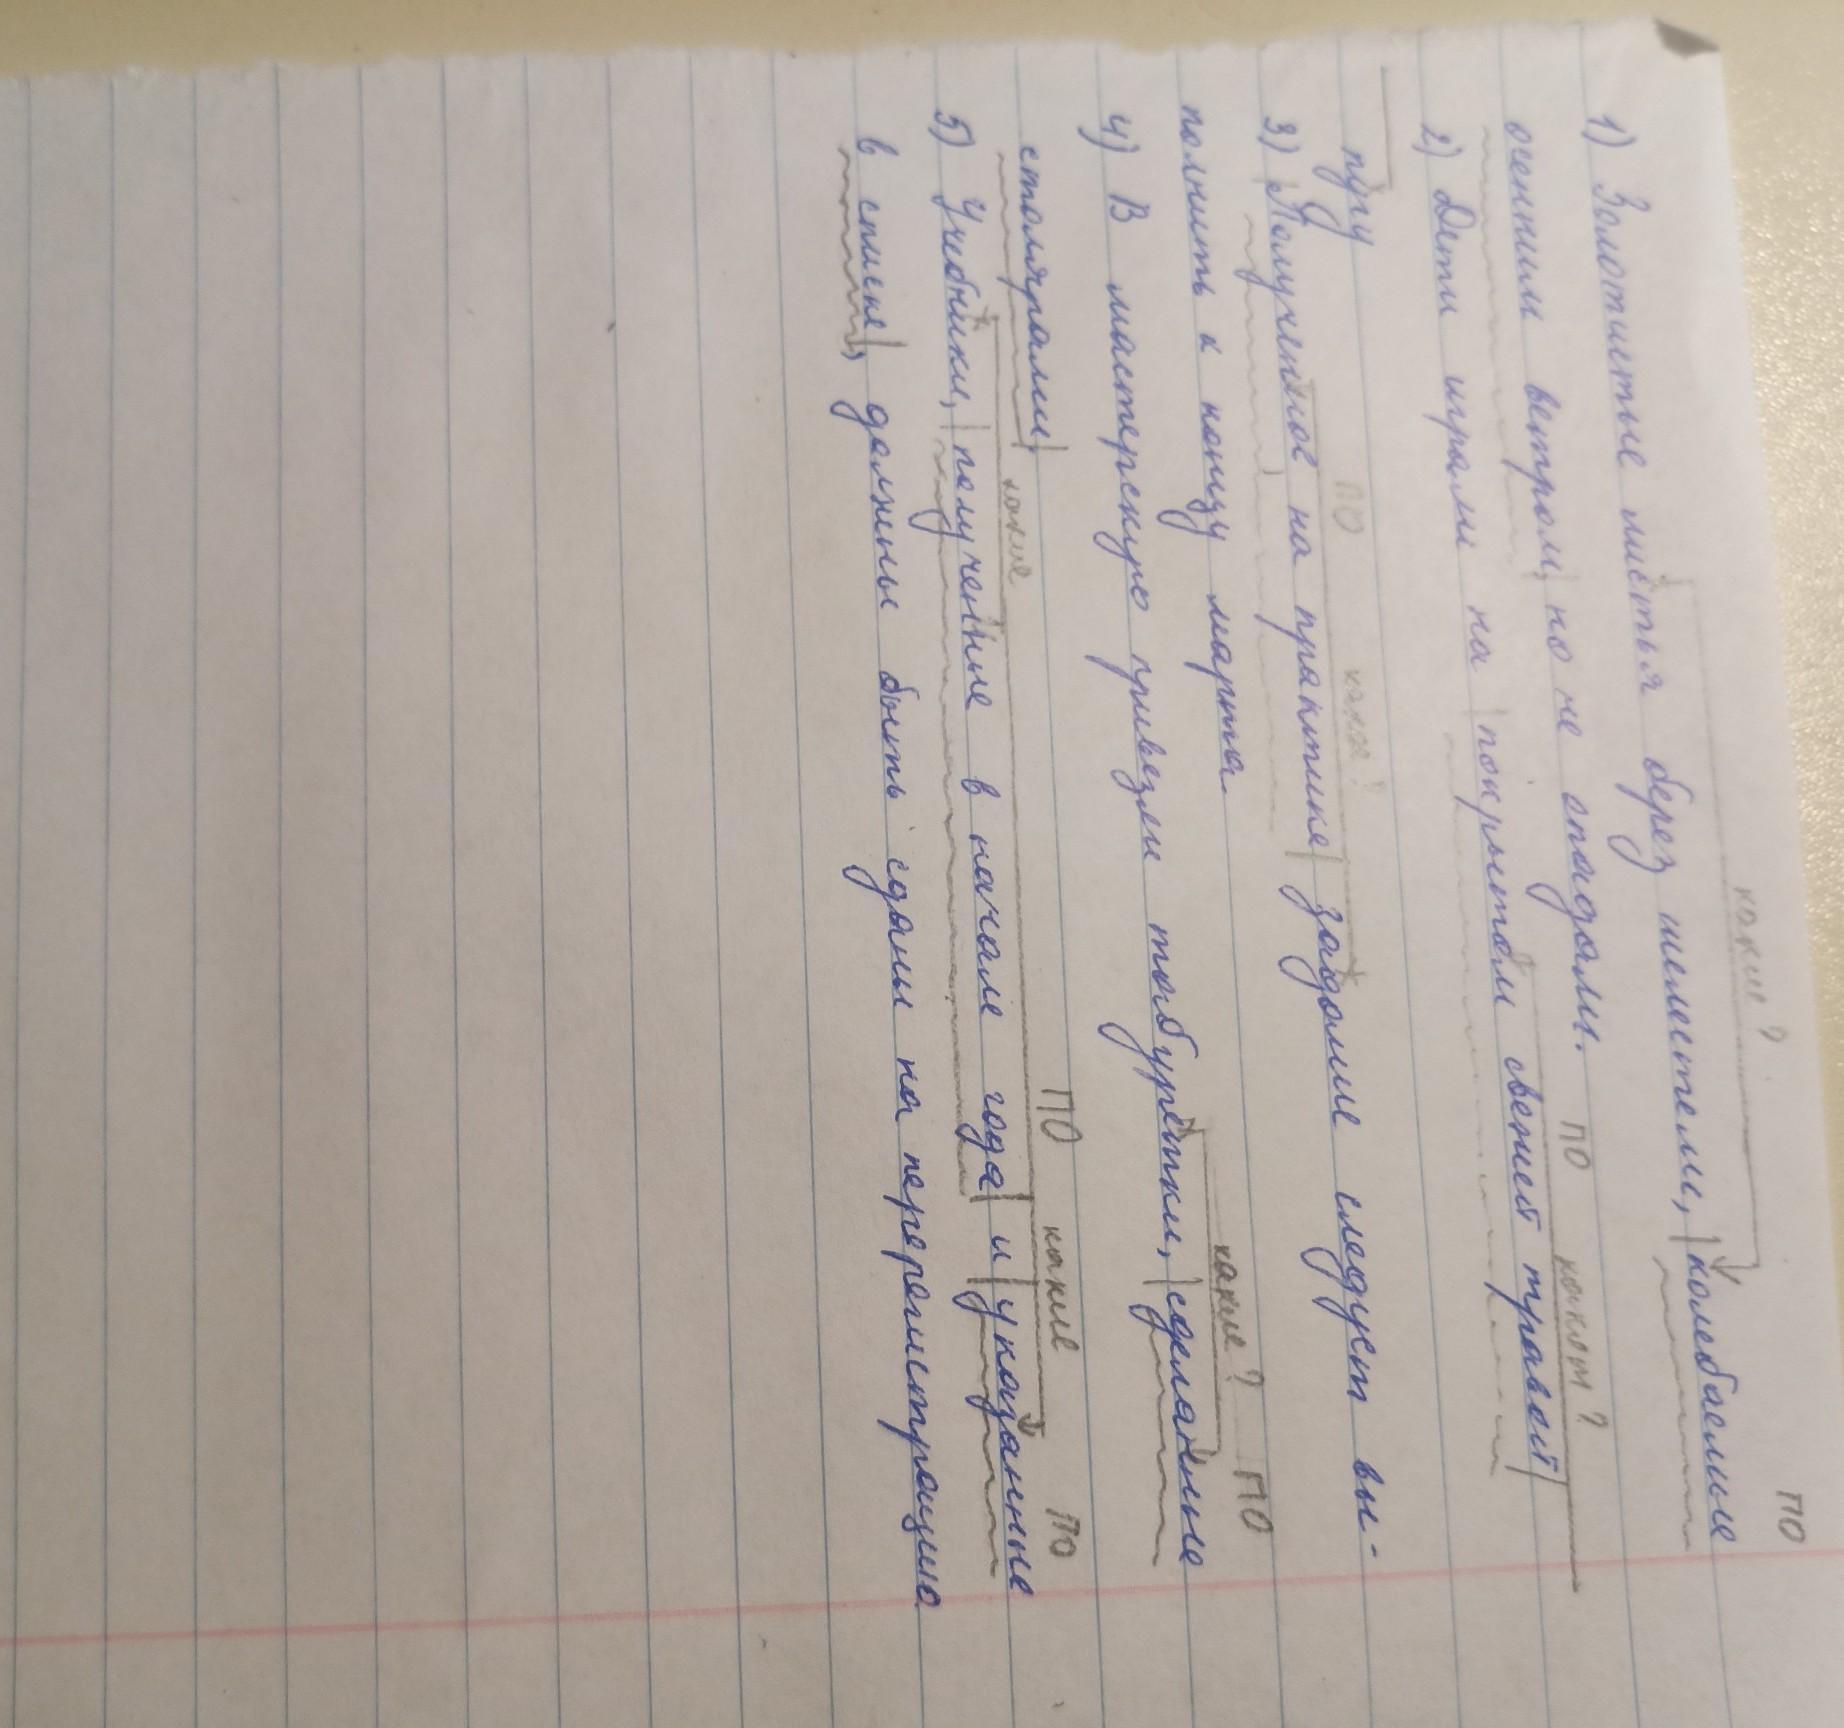 какие? ПО
1) Золотистые листья берез шелестели, колеблемые
осенним ветром, но не опадали. ПО каком?
2) Дети играли на покрытом свежей травой
лугу ПО какое?
3) Полученное на практике задание следует вы-
полнить к концу марта. какие? ПО
4) В мастерскую привезли табуретки, сделанные
столярами. какие ПО какие ПО
5) Учебники, полученные в начале года и указанные
в списке, должны быть сданы на перерегистрацию